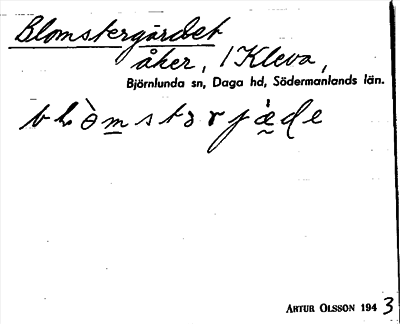 Blomstergärdet
åker, 1 Kleva,
Björnlunda sn, Daga hd, Södermanlands län.
ARTUR OLSSON 1943